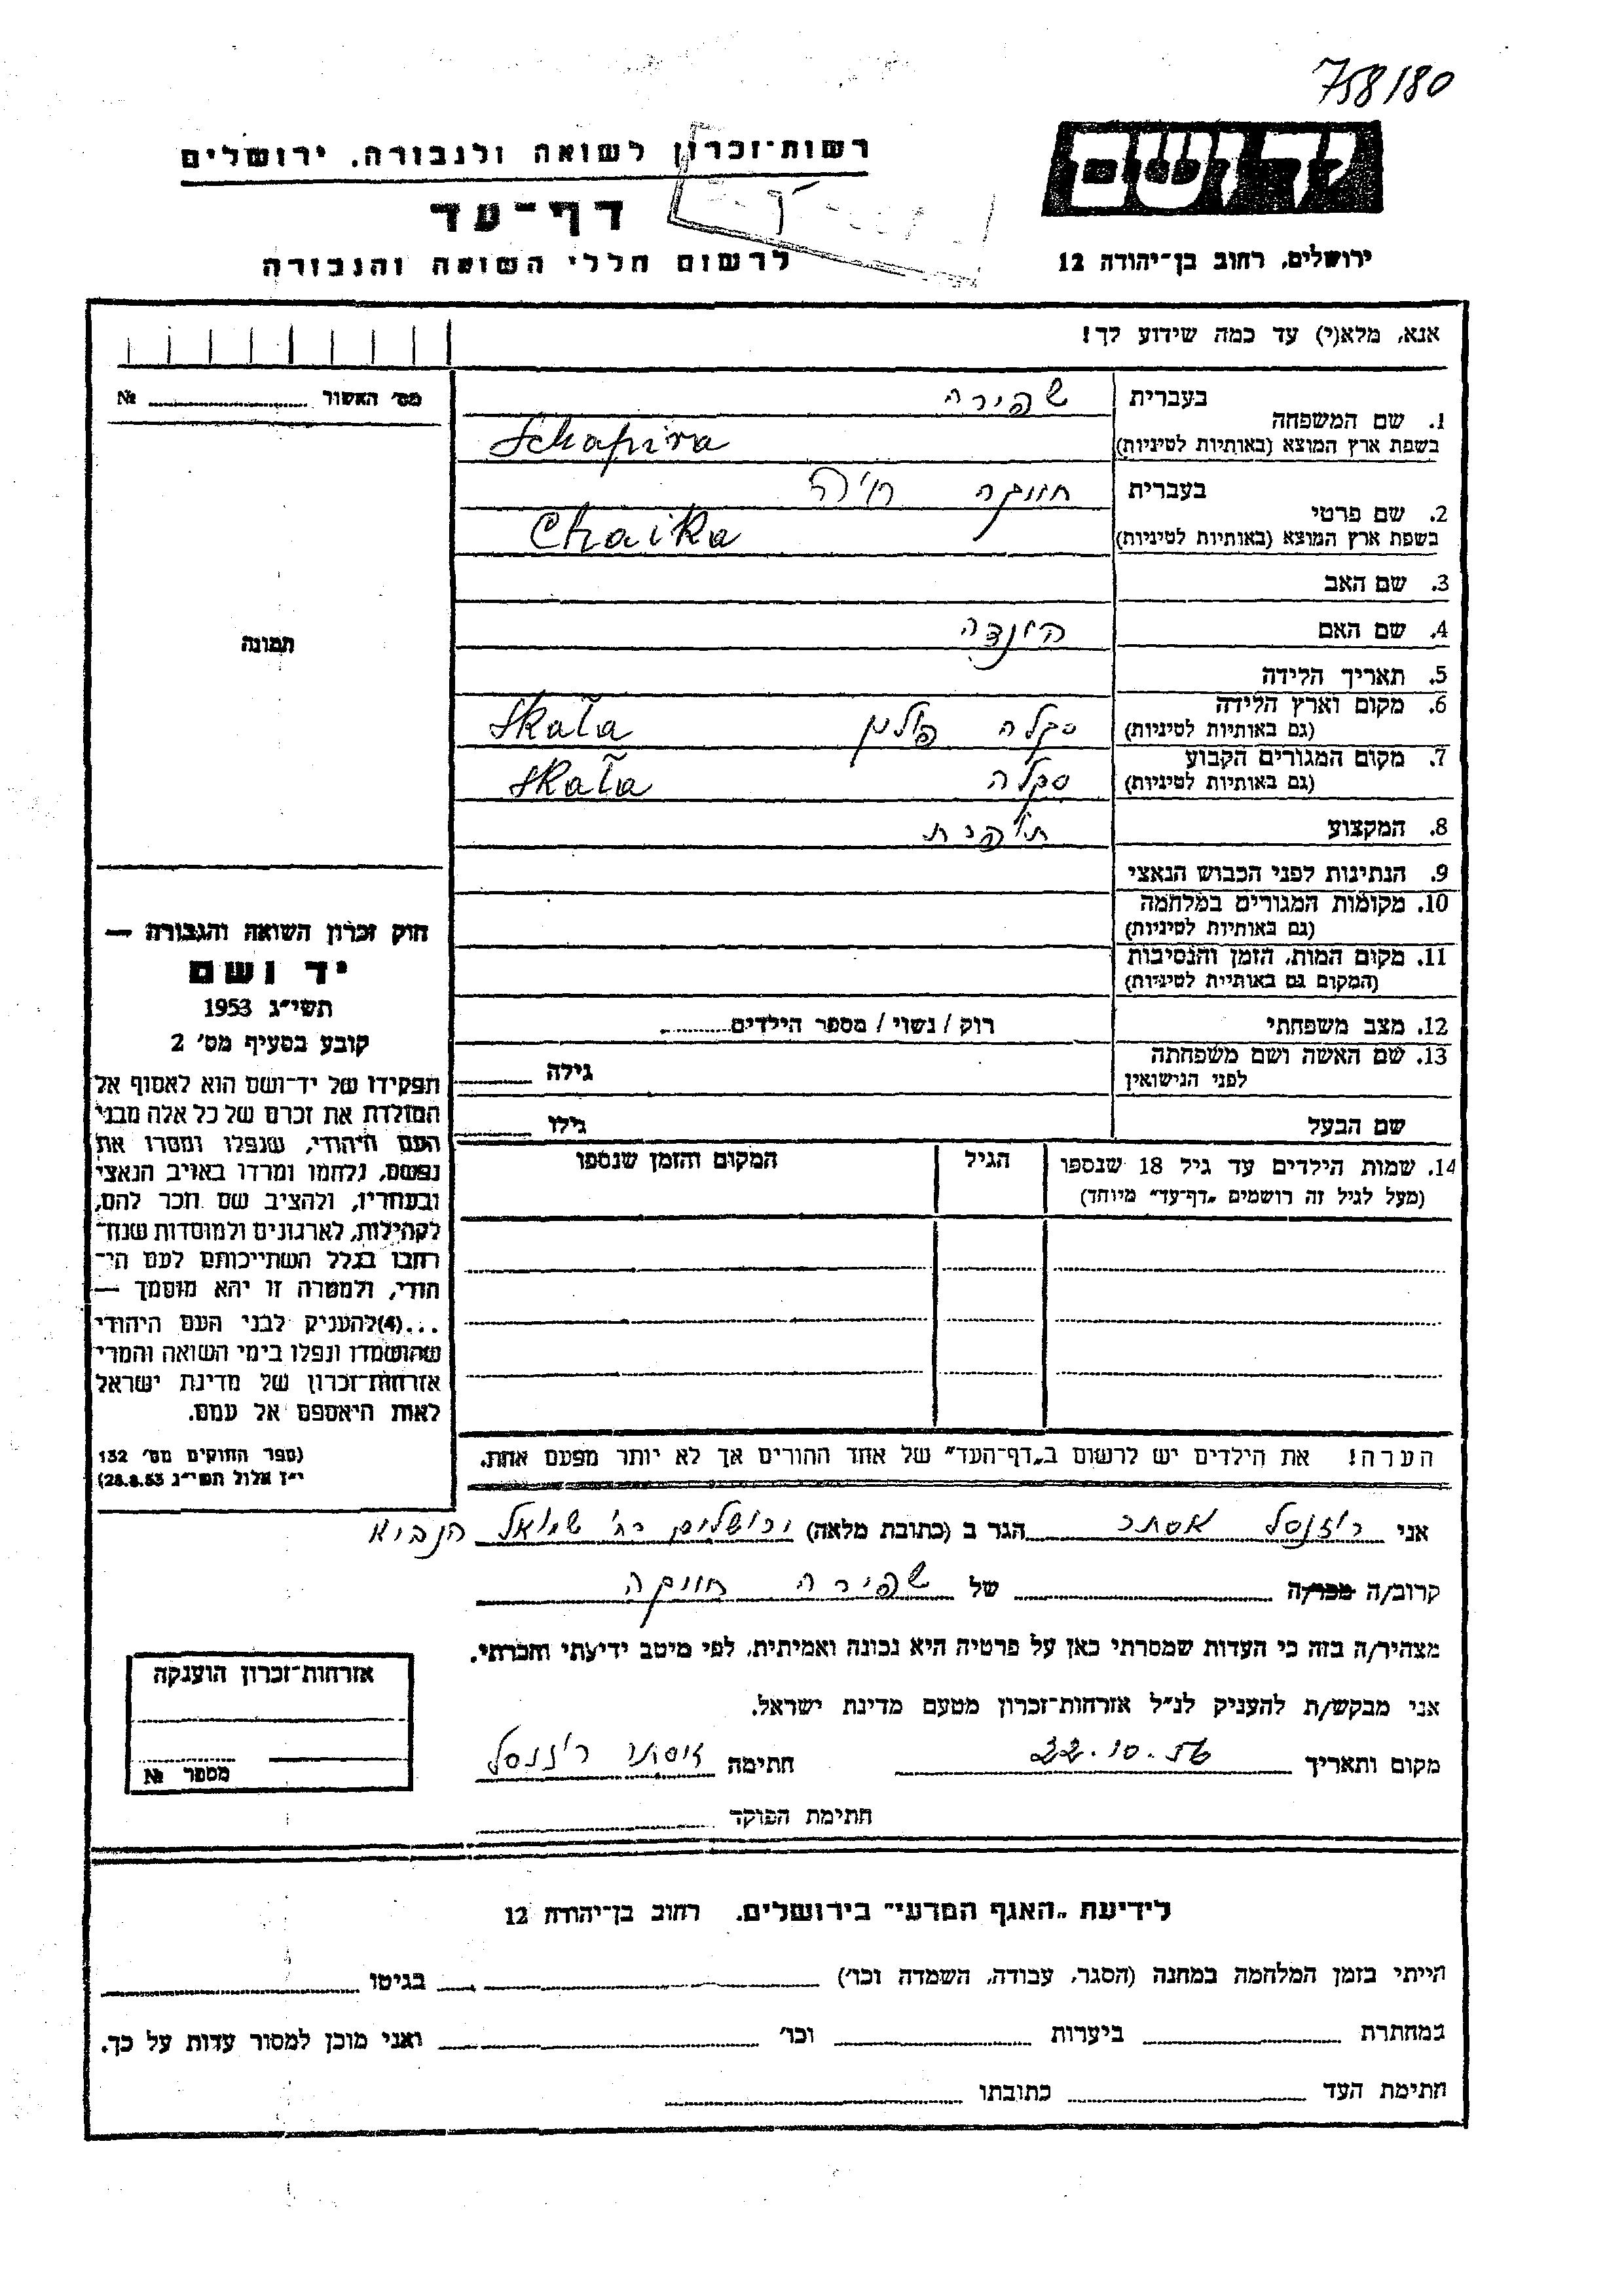 758/80
רשות־זכרון לשואה ולגבורה, ירושלים
דף־עד
לרשום חללי השואה והגבורה
יד ושם
ירושלים, רחוב בן־יהודה 12
אנא, מלא(י) עד כמה שידוע לך!
מס' האשור № 
1. שם המשפחה בעברית שפירה
בשפת ארץ המוצא (באותיות לטיניות) Schapira
2. שם פרטי בעברית חייקה חיה
בשפת ארץ המוצא (באותיות לטיניות) Chaika
3. שם האב
4. שם האם הינדה
5. תאריך הלידה
6. מקום וארץ הלידה סקלה פולין Skała
(גם באותיות לטיניות)
7. מקום המגורים הקבוע סקלה Skała
(גם באותיות לטיניות)
8. המקצוע תופרת
9. הנתינות לפני הכבוש הנאצי
10. מקומות המגורים במלחמה
(גם באותיות לטיניות)
11. מקום המות, הזמן והנסיבות
(המקום גם באותיות לטיניות)
12. מצב משפחתי רוק / נשוי / מספר הילדים
13. שם האשה ושם משפחתה גילה
לפני הנישואין
שם הבעל גילו
14. שמות הילדים עד גיל 18 שנספו הגיל המקום והזמן שנספו
(מעל לגיל זה רושמים „דף־עד" מיוחד)
הערה! את הילדים יש לרשום ב„דף־העד" של אחד ההורים אך לא יותר מפעם אחת.
תמונה
חוק זכרון השואה והגבורה —
יד ושם
תשי״ג 1953
קובע בסעיף מס' 2
תפקידו של יד־ושם הוא לאסוף אל
המולדת את זכרם של כל אלה מבני
העם היהודי, שנפלו ומסרו את
נפשם, נלחמו ומרדו באויב הנאצי
ובעוזריו, ולהציב שם וזכר להם,
לקהילות, לארגונים ולמוסדות שנח־
רבו בגלל השתייכותם לעם הי־
הודי, ולמטרה זו יהא מוסמך —
...(4)להעניק לבני העם היהודי
שהושמדו ונפלו בימי השואה והמרי
אזרחות־זכרון של מדינת ישראל
לאות היאספם אל עמם.
(ספר החוקים מס' 132
י״ז אלול תשי״ג 28.8.53)
אני אסתר הגר ב (כתובת מלאה) ירושלים רח' שמואל הנביא
קרוב/ה מכר/ה של שפירה חייקה
מצהיר/ה בזה כי העדות שמסרתי כאן על פרטיה היא נכונה ואמיתית, לפי מיטב ידיעתי והכרתי.
אני מבקש/ת להעניק לנ״ל אזרחות־זכרון מטעם מדינת ישראל.
מקום ותאריך 22.10.56 חתימה אסתר
חתימת הפוקד
אזרחות־זכרון הוענקה
מספר №
לידיעת „האגף המדעי" בירושלים, רחוב בן־יהודה 12
הייתי בזמן המלחמה במחנה (הסגר, עבודה, השמדה וכו') בגיטו
במחתרת ביערות וכו' ואני מוכן למסור עדות על כך.
חתימת העד כתובתו